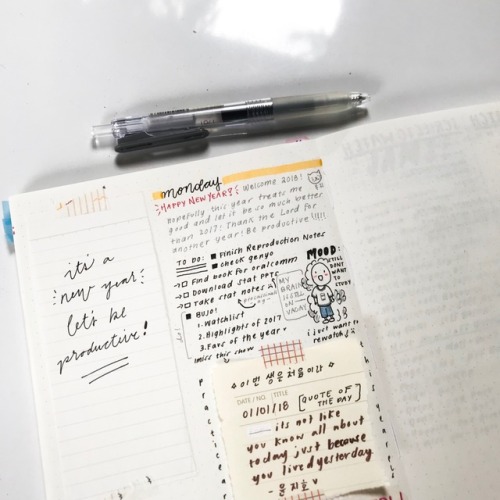 it's a
new year
let's be
productive!
monday
HAPPY NEW YEAR! Welcome 2018!
hopefully this year treats me
good and let it be so much better
than 2017! Thank the Lord for
another year! Be productive!!!!!
TO DO:
Finish Reproduction Notes
check genyo
Find book for oralcomm
Download stat PPTs
Take stat notes 2
procrastinate again
BUJO!
1. Watchlist
2. Highlights of 2017
3. Favs of the year
miss this show
MY
BRAIN
IS STILL
ON
VACAY
MOOD:
STILL
DONT
WANT
TO
STUDY
i just want to
rewatch
이번 생은 처음이라
DATE / NO.
TITLE
01/01/18
[QUOTE OF
THE DAY]
its not like
you know all about
today just because
you lived yesterday
- 윤지호